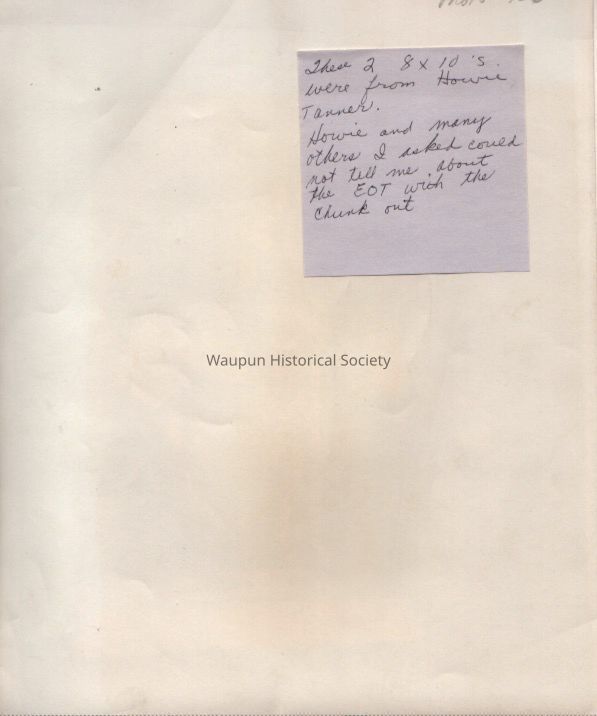 These 2 8 x 10's.
were from Howie
Tanner.
Howie and many
others I asked could
not tell me about
the EOT with the
chunk out
Waupun Historical Society